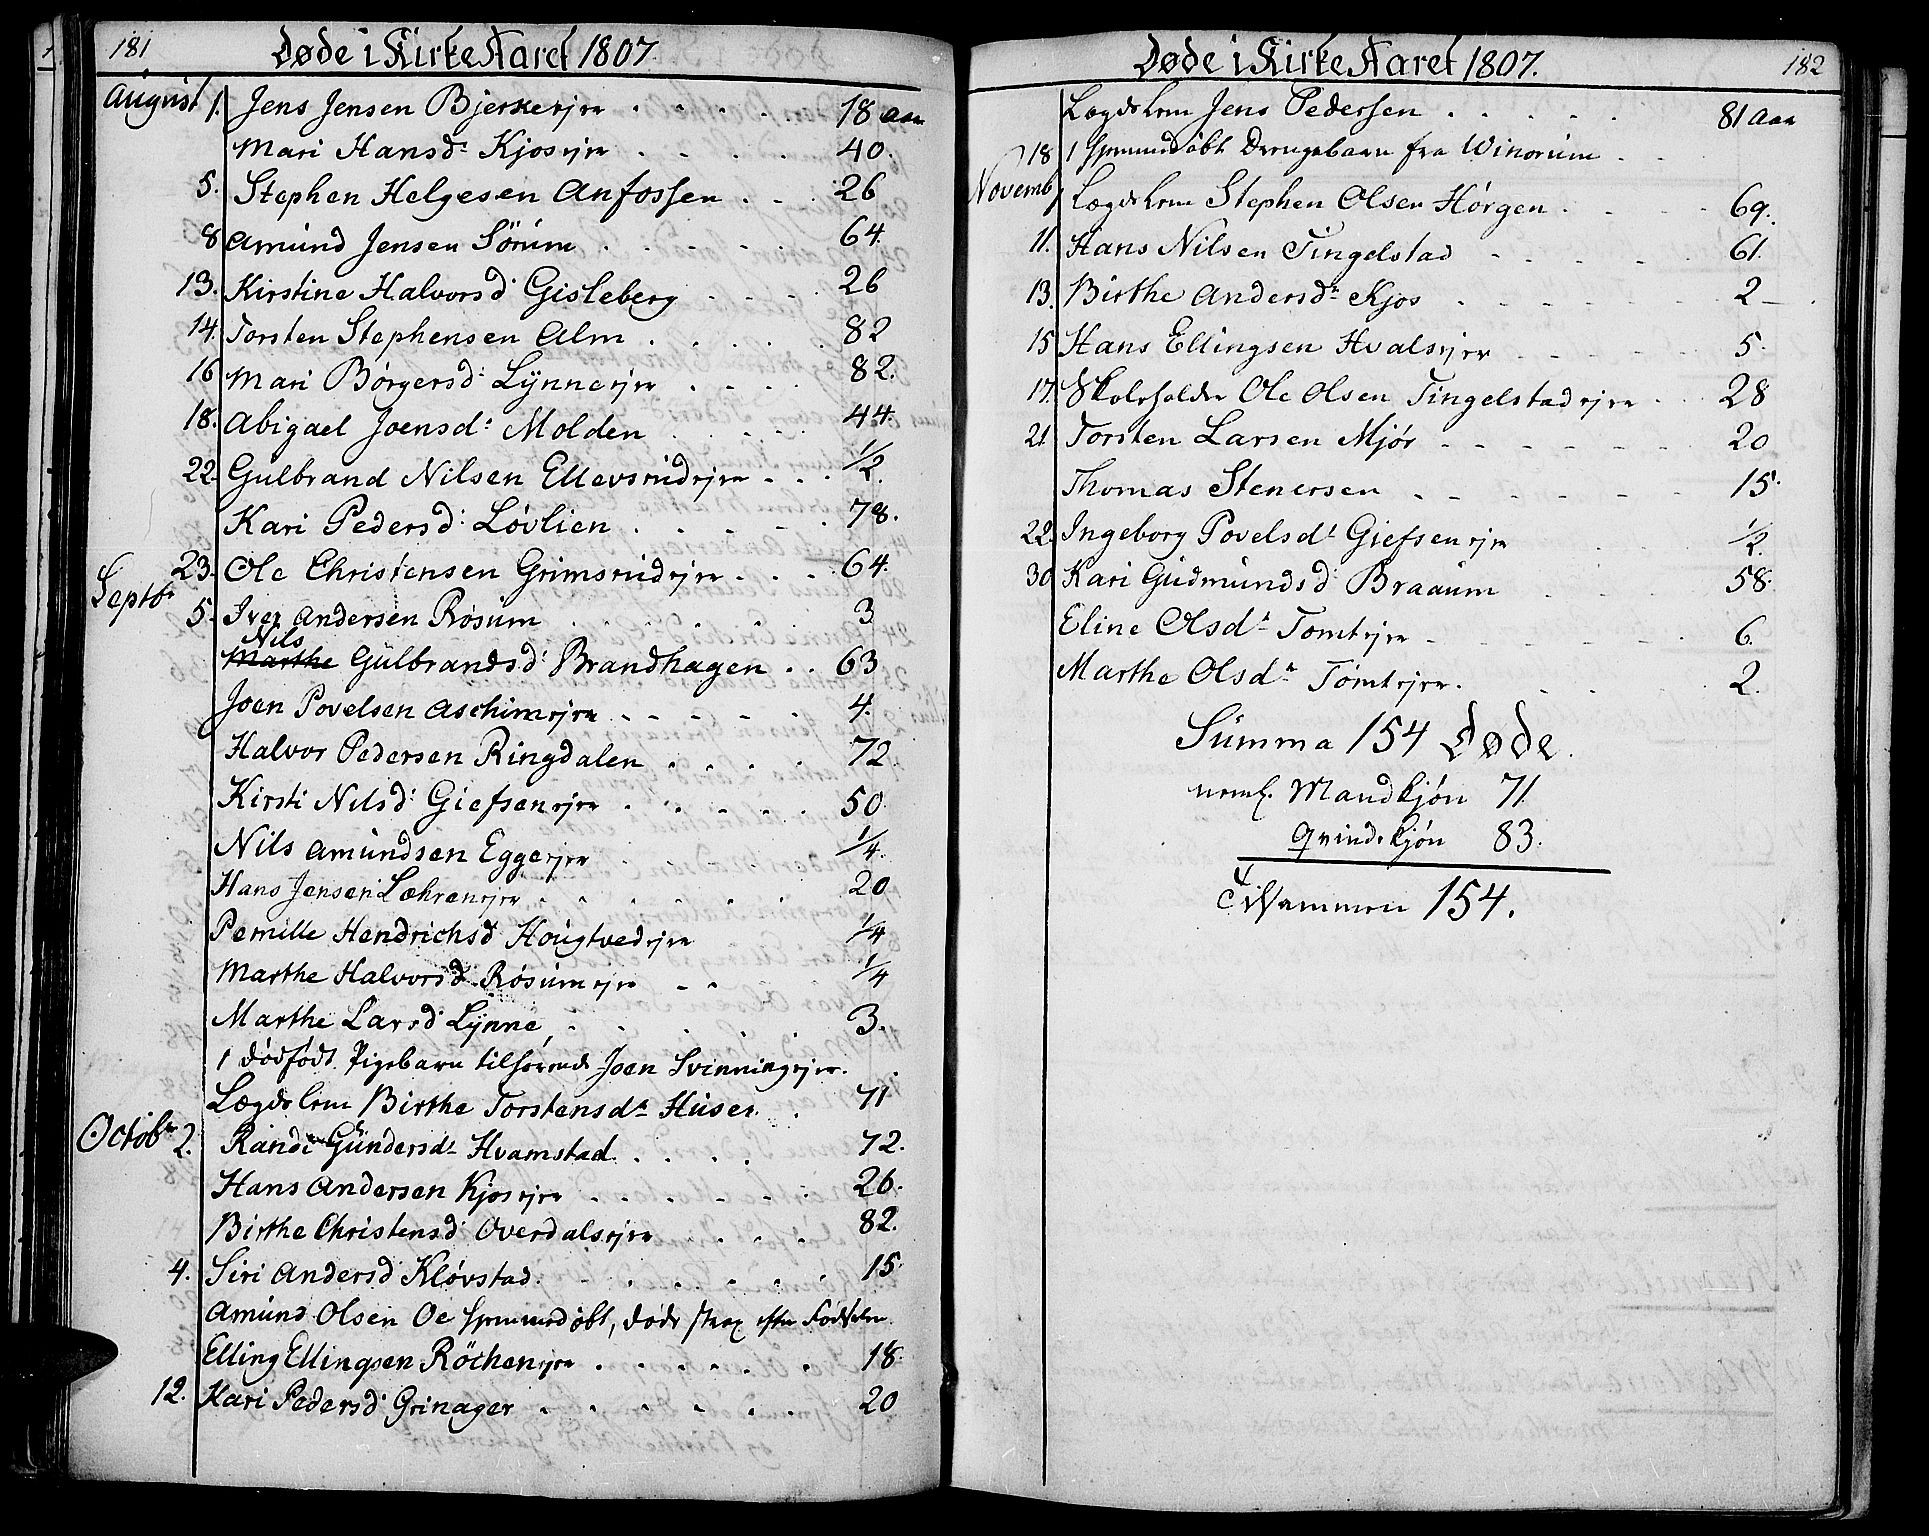 181 Døde i Kirke Aaret 1807.
August 1. Jens Jensen Bjerkeejer 18 Aar
Mari Hansd: Kjosejer 40.
5. Stephen Helgesen Anfossen 26
8 Amund Jensen Sørum 64.
13. Kirstine Halvorsd: Gisleberg 26
14. Torsten Stephensen Alm 82
16 Mari Børgersd: Lynneejer 82.
18. Abigael Joensd: Molden 44.
22. Gulbrand Nilsen Ellevsrudejer 1/2.
Kari Pedersd: Løvlien 78.
23. Ole Christensen Grimsrudejer 64.
Septbr 5. Iver Andersen Røsum 3
Nils
Marthe Gulbrandsd: Brandhagen 63
Joen Povelsen Aschimejer 4.
Halvor Pedersen Ringdalen 72
Kirsti Nilsd: Giefsenejer 50.
Nils Amundsen Eggeejer 1/4.
Hans Jensen Lækrenejer 20
Pernille Hendrichsd Hougtvedejer 1/4
Marthe Halvorsd: Røsumejer 1/4
Marthe Larsd: Lynne 3.
1 dødfødt Pigebarn tilhørende Joen Svinningejer.
Lægdslem Birthe Torstensdr Huser 71
Octobr 2. Randi Gundersdr Hvamstad 72.
Hans Andersen Kjosejer 26.
Birthe Christensd: Overdalsejer 82.
4. Siri Andersd Kløvstad 15.
Amund Olsen Oe hjemmedøbt, døde strax efter Fødselen
Elling Ellingsen Röchenejer 18.
12. Kari Pedersd: Grinager 20
Døde i Kirke Aaret 1807. 182
Lægdslem Jens Pedersen 81 Aar
18 1 hjemmedøbt Drengebarn fra Winorum
Novemb 1 Lægdslem Stephen Olsen Hørgen 69.
11. Hans Nilsen Tingelstad 61.
13. Birthe Andersdr Kjos 2
15 Hans Ellingsen Hvalsejer 5.
17. Skoleholder Ole Olsen Tingelstadejer 28
21 Torsten Larsen Mjør 20
Thomas Stenersen 15.
22. Ingeborg Povelsdr Giefsenejer 1/2.
30 Kari Gudmundsd: Braaum 58.
Eline Olsdr Tomtejer 6.
Marthe Olsdr Tomtejer. 2.
Summa 154 Døde.
neml. Mandkjøn 71.
Qvindekjøn 83.
Tilsammen 154.